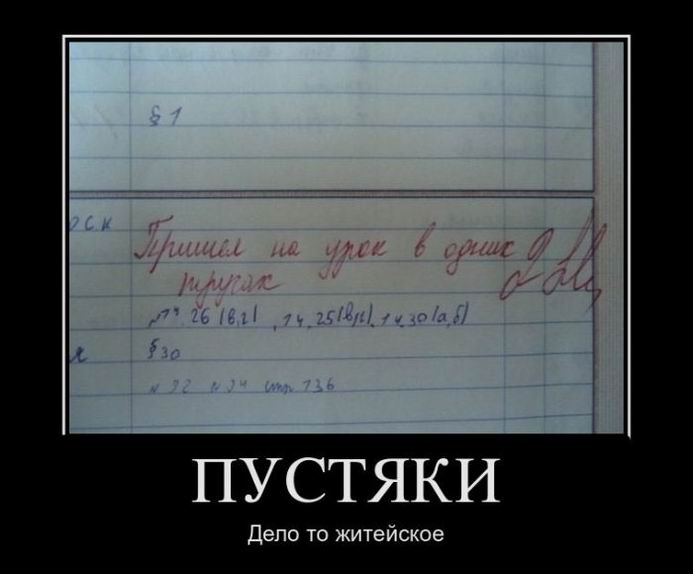 § 1
оск
Пришел на урок в одних
трусах
14.26 (в,г), 14.25 (в,г), 14.30 (а,б)
§ 30
№ 92 № 94 стр 136
ПУСТЯКИ
Дело то житейское